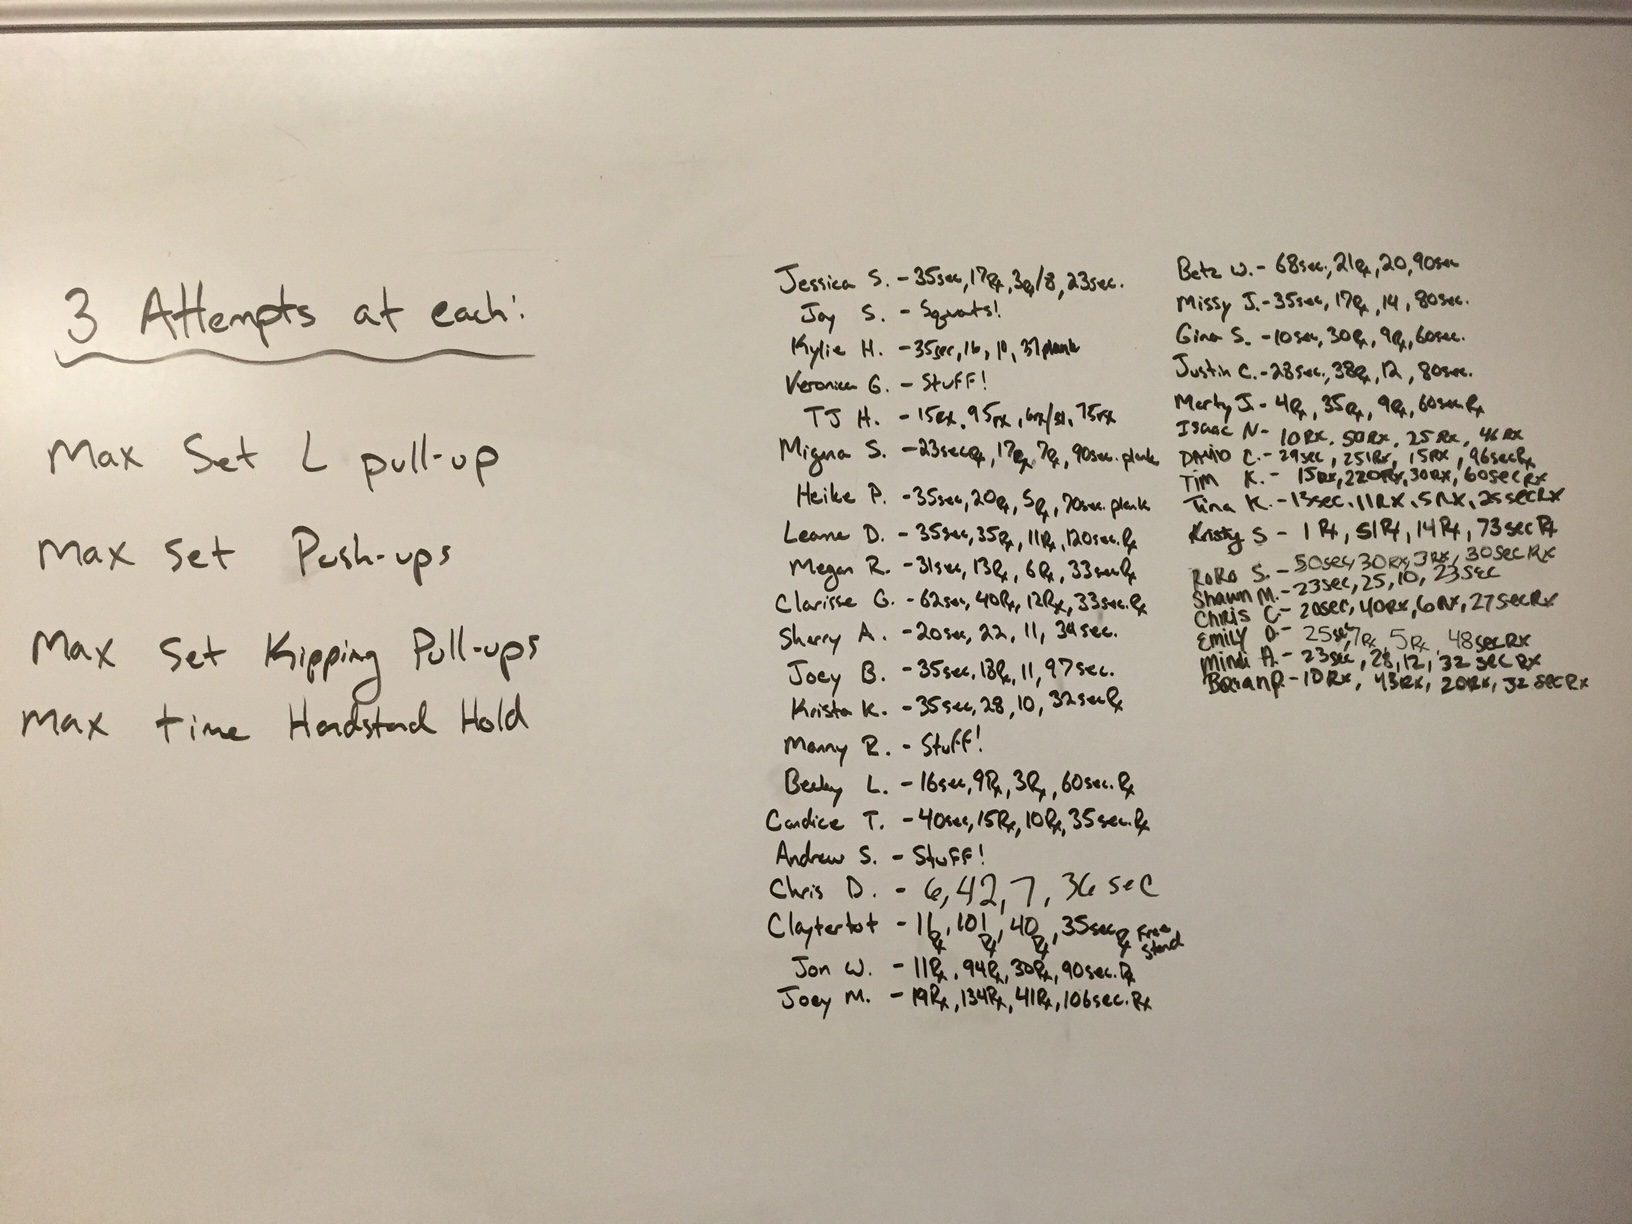 3 Attempts at each:
Max Set L pull-up
Max Set Push-ups
Max Set Kipping Pull-ups
Max time Headstand Hold
Jessica S. - 35sec, 17Rx, 3Rx/8, 23sec.
Jay S. - Squats!
Kylie H. - 35sec, 16, 10, 37 plank
Veronica G. - Stuff!
TJ H. - 15Rx, 95rx, 75rx
Miguna S. - 23secRx, 17Rx, 7Rx, 90sec. plank
Heike P. - 35sec, 20Rx, 5Rx, 70sec. plank
Leanne D. - 35sec, 35Rx, 11Rx, 120sec. Rx
Megan R. - 31sec, 13Rx, 6Rx, 33secRx
Clarisse G. - 62sec, 40Rx, 12Rx, 33sec. Rx
Sherry A. - 20sec, 22, 11, 34sec.
Joey B. - 35sec, 13Rx, 11, 97sec.
Krista K. - 35sec, 28, 10, 32secRx
Manny R. - Stuff!
Becky L. - 16sec, 9Rx, 3Rx, 60sec. Rx
Candice T. - 40sec, 15Rx, 10Rx, 35sec. Rx
Andrew S. - Stuff!
Chris D. - 6, 42, 7, 36 sec
Claytertot - 16Rx, 101Rx, 40Rx, 35secRx Free Stand
Jon W. - 11Rx, 94Rx, 30Rx, 90sec. Rx
Joey M. - 19Rx, 134Rx, 41Rx, 106sec. Rx
Betz W. - 68sec, 21Rx, 20, 90sec
Missy J. - 35sec, 17Rx, 14, 80sec.
Gina S. - 10sec, 30Rx, 9Rx, 60sec.
Justin C. - 28sec, 38Rx, 12, 80sec.
Marty J. - 4Rx, 35Rx, 9Rx, 60secRx
Isaac N - 10Rx, 50Rx, 25Rx, 46Rx
DAVID C. - 29sec, 251Rx, 15Rx, 96secRx
Tim K. - 15Rx, 220Rx, 30Rx, 60secRx
Tina K. - 13sec, 11Rx, 5Rx, 25secRx
Kristy S - 1 Rx, 51Rx, 14Rx, 73sec Rx
RoRo S. - 50sec, 30Rx, 3Rx, 30sec Rx
Shawn M. - 23sec, 25, 10, 23sec
Chris C - 20sec, 40Rx, 6Rx, 27secRx
Emily O - 25sec, 7Rx, 5Rx, 48secRx
Mindi A. - 23sec, 28, 12, 32 sec Rx
Brian P - 10Rx, 43Rx, 20Rx, 32 secRx